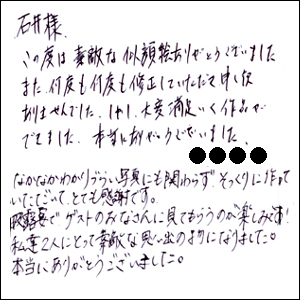 石井様
この度は素敵な似顔絵ありがとうございました
また何度も何度も修正していただて申し訳
ありませんでした。しかし、大変満足いく作品が
できました。本当にありがとうございました。
なかなかわかりづらい写真にも関わらず、そっくりに作って
いただいて、とても感謝です。
披露宴で ゲストのみなさんに見てもらうのが楽しみです!
私達2人にとって素敵な思い出の
になりました。
本当にありがとうございました。